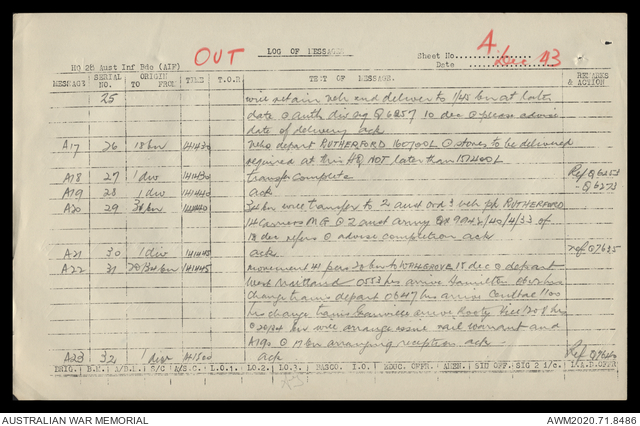 OUT
LOG OF MESSAGES
A
HQ 2b Aust Inf Bde (AIF)
Sheet No.
Date Dec 43
MESSAGE SERIAL NO. ORIGIN TO FROM TIME T.O.R TEXT OF MESSAGE. REMARKS & ACTION
25 will retain veh and deliver to 1/45 bn at later
date @ auth div sig Q6257 10 dec @ please advise
date of delivery ack
A17 26 18 bn 141430 who depart RUTHERFORD 160700L @ stores to be delivered
required at this HQ NOT later than 151400L
A18 27 1 div 141430 transfer complete Ref Q6253
A19 28 1 div 141440 ack - Q6273
A20 29 30 bn 141440 30 bn will transfer to 2 aust ord veh pk RUTHERFORD
14 Carriers MG @ 2 aust army
18 dec refers @ advise completion ack
A21 30 1 div 141445 ack ref Q7625
A22 31 20/34 bn 141445 movement 41 pers 30 bn to WALGROVE 15 dec @ depart
West Maitland 0553 hrs arrive Hamilton
Change trains depart 0647 hrs arrive 1100
hrs change trains Granville arrive Rooty Hill 1208 hrs
@ 20/34 bn will arrange issue rail warrant and
@ bn arranging reception ack
A23 32 1 div 141500 ack
BRIG. B.M. S/C A/S.C. L.O.1. L.O.2. L.O.3. BASCO. I.O. EDUC. OFFER AMEN. SIG OFF. SIG 2 i/c. L.A.D. OFFER
AUSTRALIAN WAR MEMORIAL
AWM2020.71.8486